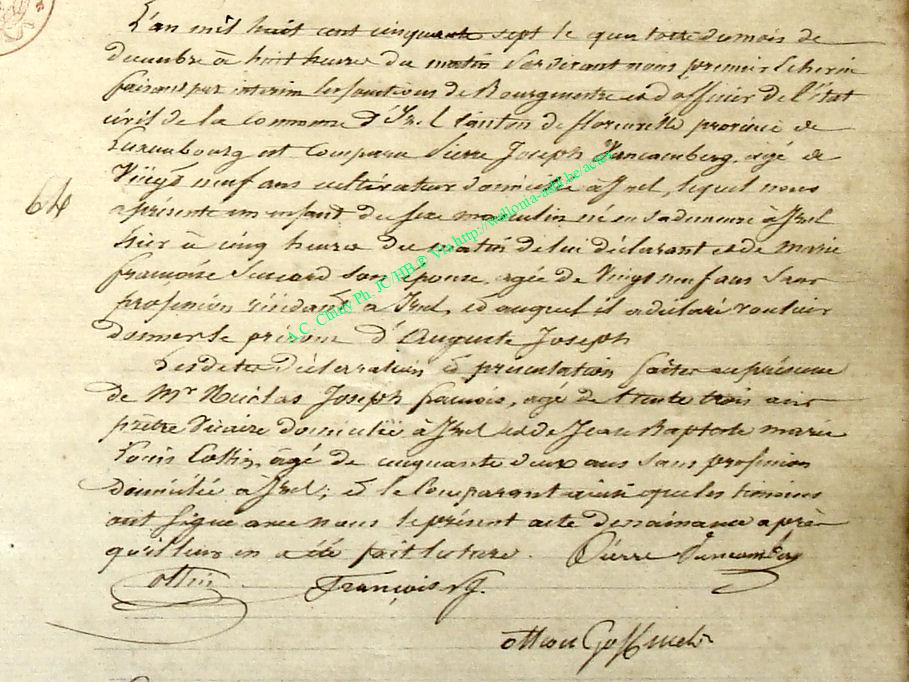 L'an mil huit cent cinquante sept le quatorze du mois de
decembre à huit heures du matin Pardevant nous premier Echevin
faisant par interim les fonctions de Bourgmestre et d'officier de l'état
civil de la commune d'Izel Canton de florenville province de
Luxembourg est comparu Pierre Joseph Vancamberg, agé de
Vingt neuf ans cultivateur domicilié à Izel, lequel nous
64
a présenté un enfant du sexe masculin né en sa demeure à Izel
hier à cinq heures du matin de lui déclarant et de marie
françoise son épouse, agée de Vingt neuf ans Sans
profession résidant à Izel, et auquel il a déclaré vouloir
donner le prénom d'Auguste Joseph
Lesdites déclaration et présentation faites en présence
de Mr Nicolas Joseph francois, agé de trente trois ans
prêtre Vicaire domicilié à Izel et de Jean Baptiste marie
Louis Collin, agé de cinquante deux ans Sans profession
domicilié à Izel; et le Comparant ainsi que les témoins
ont Signé avec nous le présent acte de naissance après
qu'il leur en a été fait lecture. Pierre Vancamberg
Collin François Nj.
A.C. Chiny Ph. JC HB © Via http://wallonia-asbl.be.actes